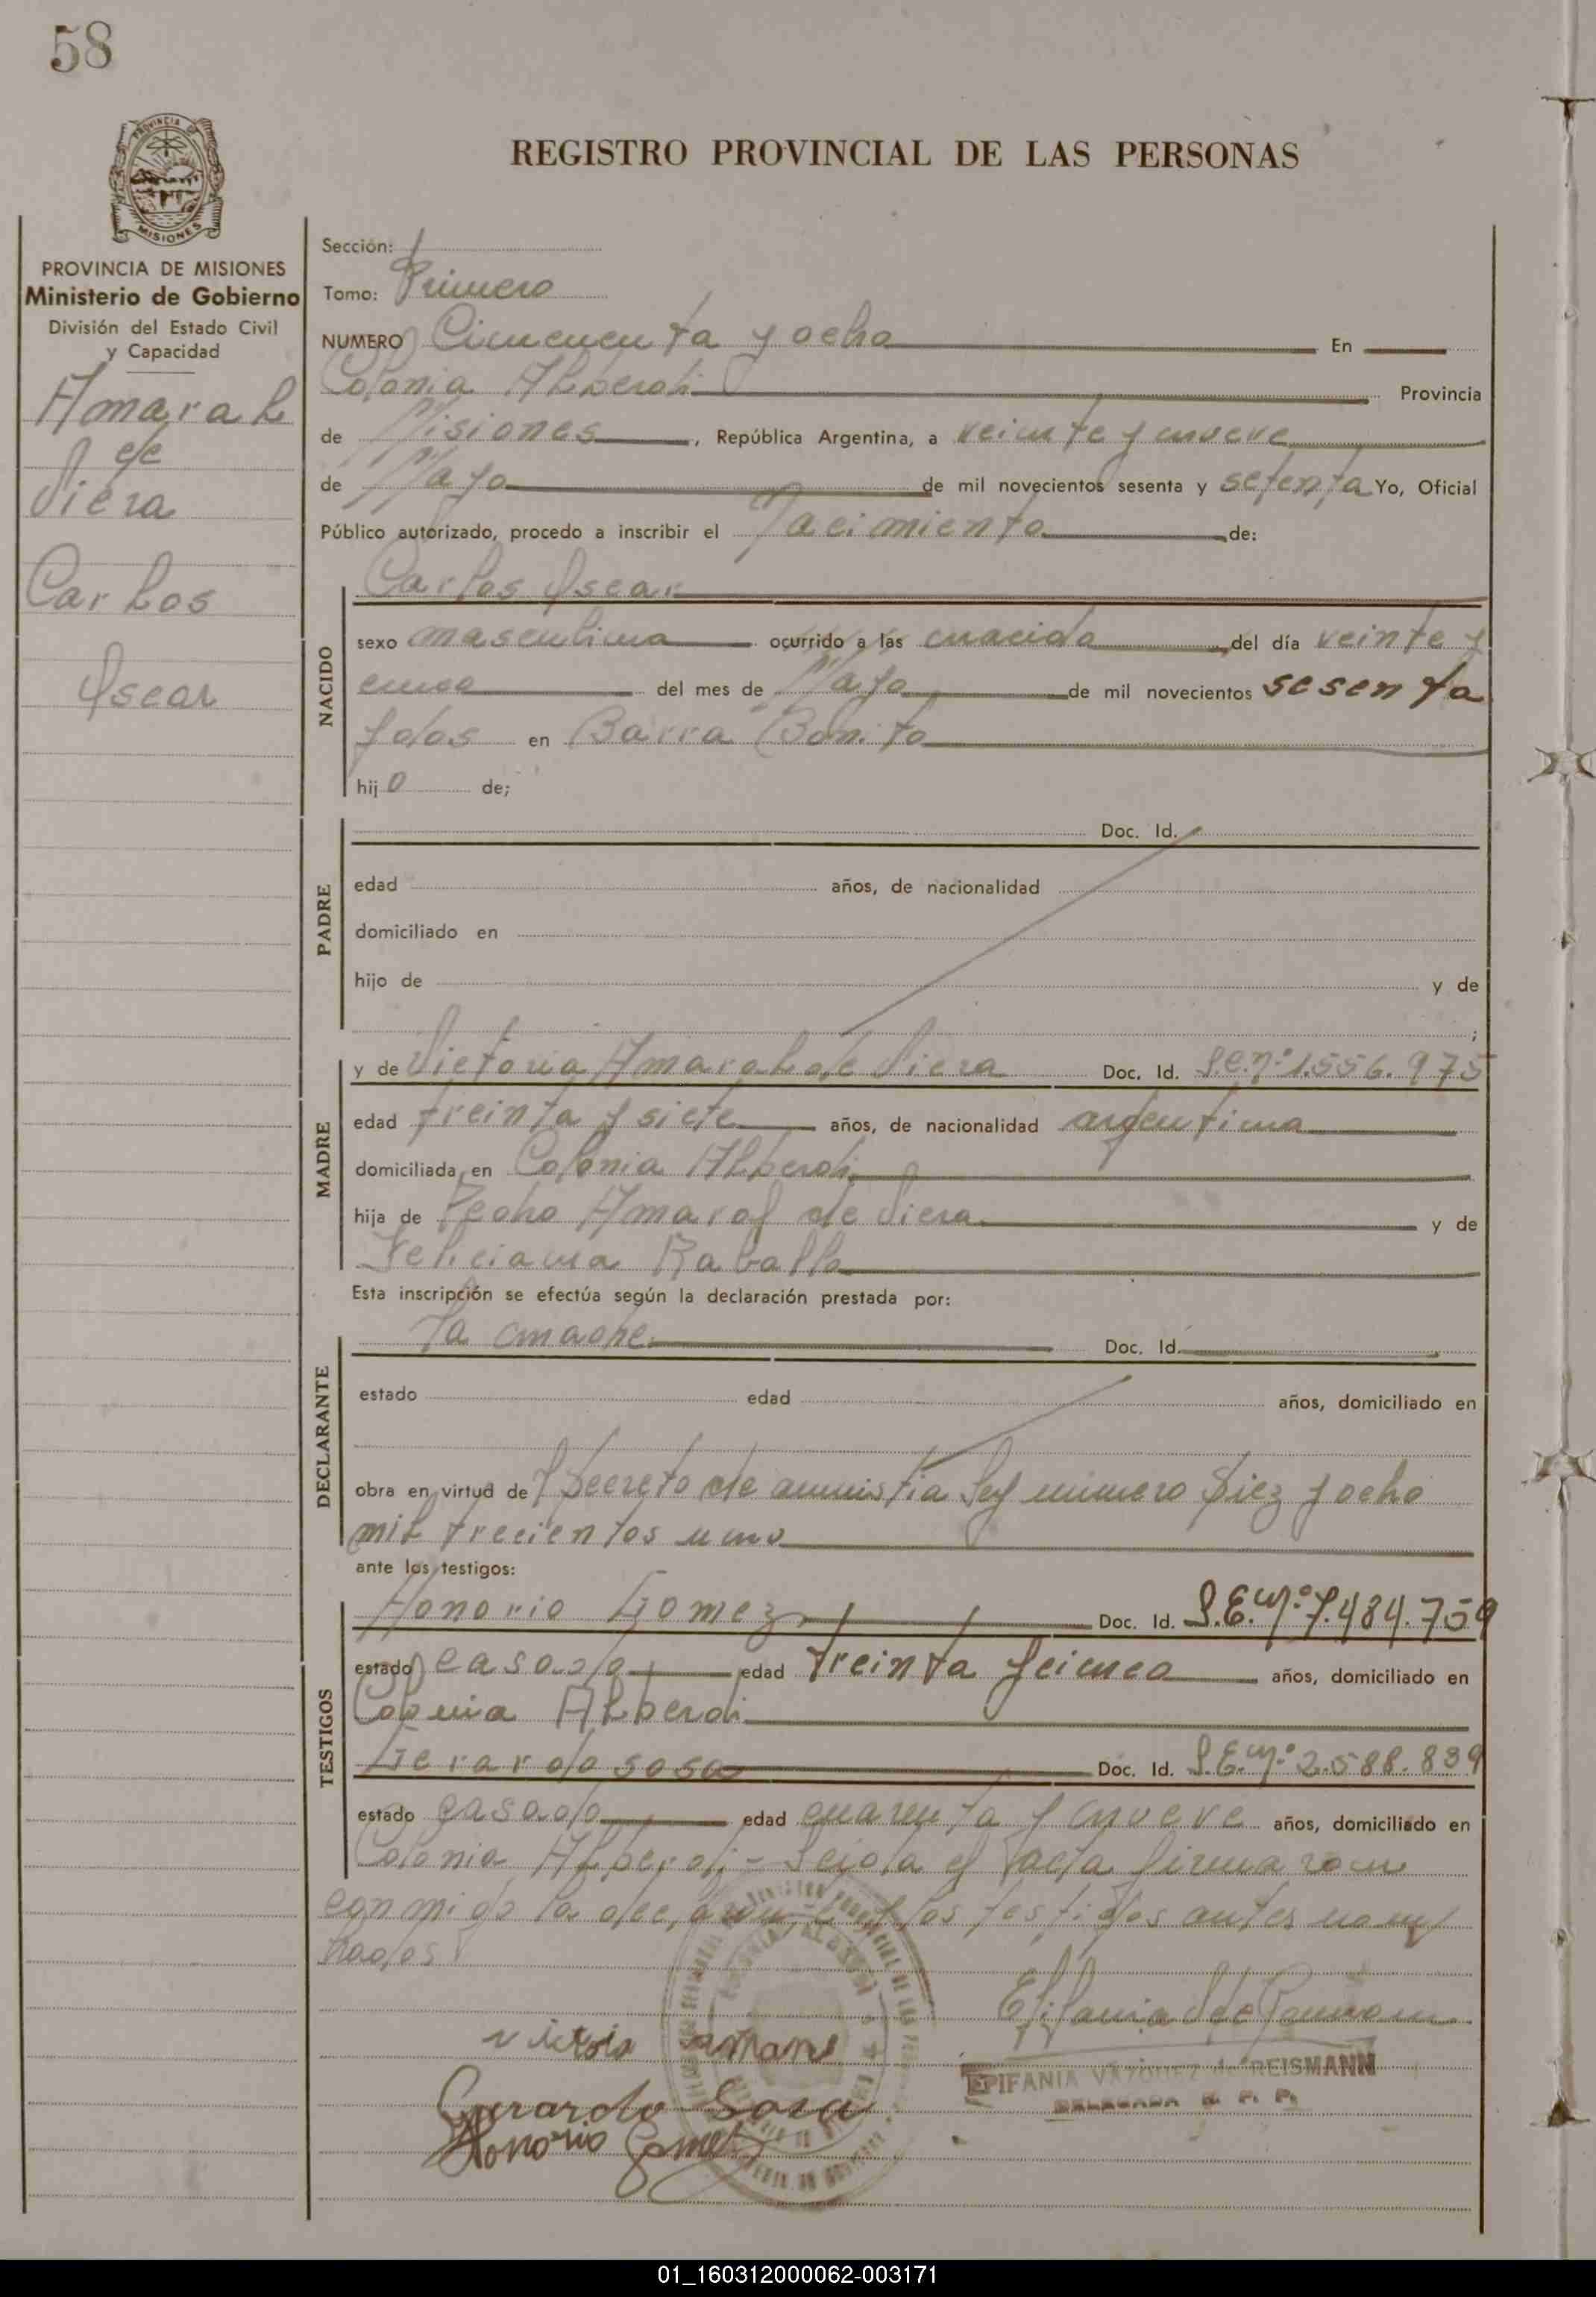 58
PROVINCIA DE
MISIONES
REGISTRO PROVINCIAL DE LAS PERSONAS
PROVINCIA DE MISIONES
Ministerio de Gobierno
División del Estado Civil
y Capacidad
Amaral
de
Viera
Carlos
Oscar
Sección:
Tomo: Primero
NUMERO Cincuenta y ocho En
Colonia Alberdi Provincia
de Misiones, República Argentina, a veinte y nueve
de Mayo de mil novecientos sesenta y setenta Yo, Oficial
Público autorizado, procedo a inscribir el Nacimiento de:
Carlos Oscar
NACIDO
sexo masculino ocurrido a las nacido del día veinte y
cinco del mes de Mayo de mil novecientos sesenta
y dos en Barra Bonita
hijo de;
PADRE
Doc. Id.
edad años, de nacionalidad
domiciliado en
hijo de y de
;
MADRE
y de Victoria Amaral de Viera Doc. Id. 1.556.975
edad treinta y siete años, de nacionalidad argentina
domiciliada en Colonia Alberdi
hija de Pedro Amaral de Viera y de
Feliciana Raballo
Esta inscripción se efectúa según la declaración prestada por:
DECLARANTE
la madre Doc. Id.
estado edad años, domiciliado en
obra en virtud de Decreto de amnistia Ley número Diez y ocho
mil trecientos uno
ante los testigos:
TESTIGOS
Honorio Gomez Doc. Id. 7.484.759
estado casado edad treinta y cinco años, domiciliado en
Colonia Alberdi
Gerardo Sosa Doc. Id. 2.588.839
estado casado edad cuarenta y nueve años, domiciliado en
Colonia Alberdi - Leida el acta firmaron
conmigo la declarante y los testigos antes nom
brados
Victoria
Gerardo Sosa
Honorio Gomez
EPIFANIA VAZQUEZ de REISMANN
DELEGADA R. P. P.
01_160312000062-003171